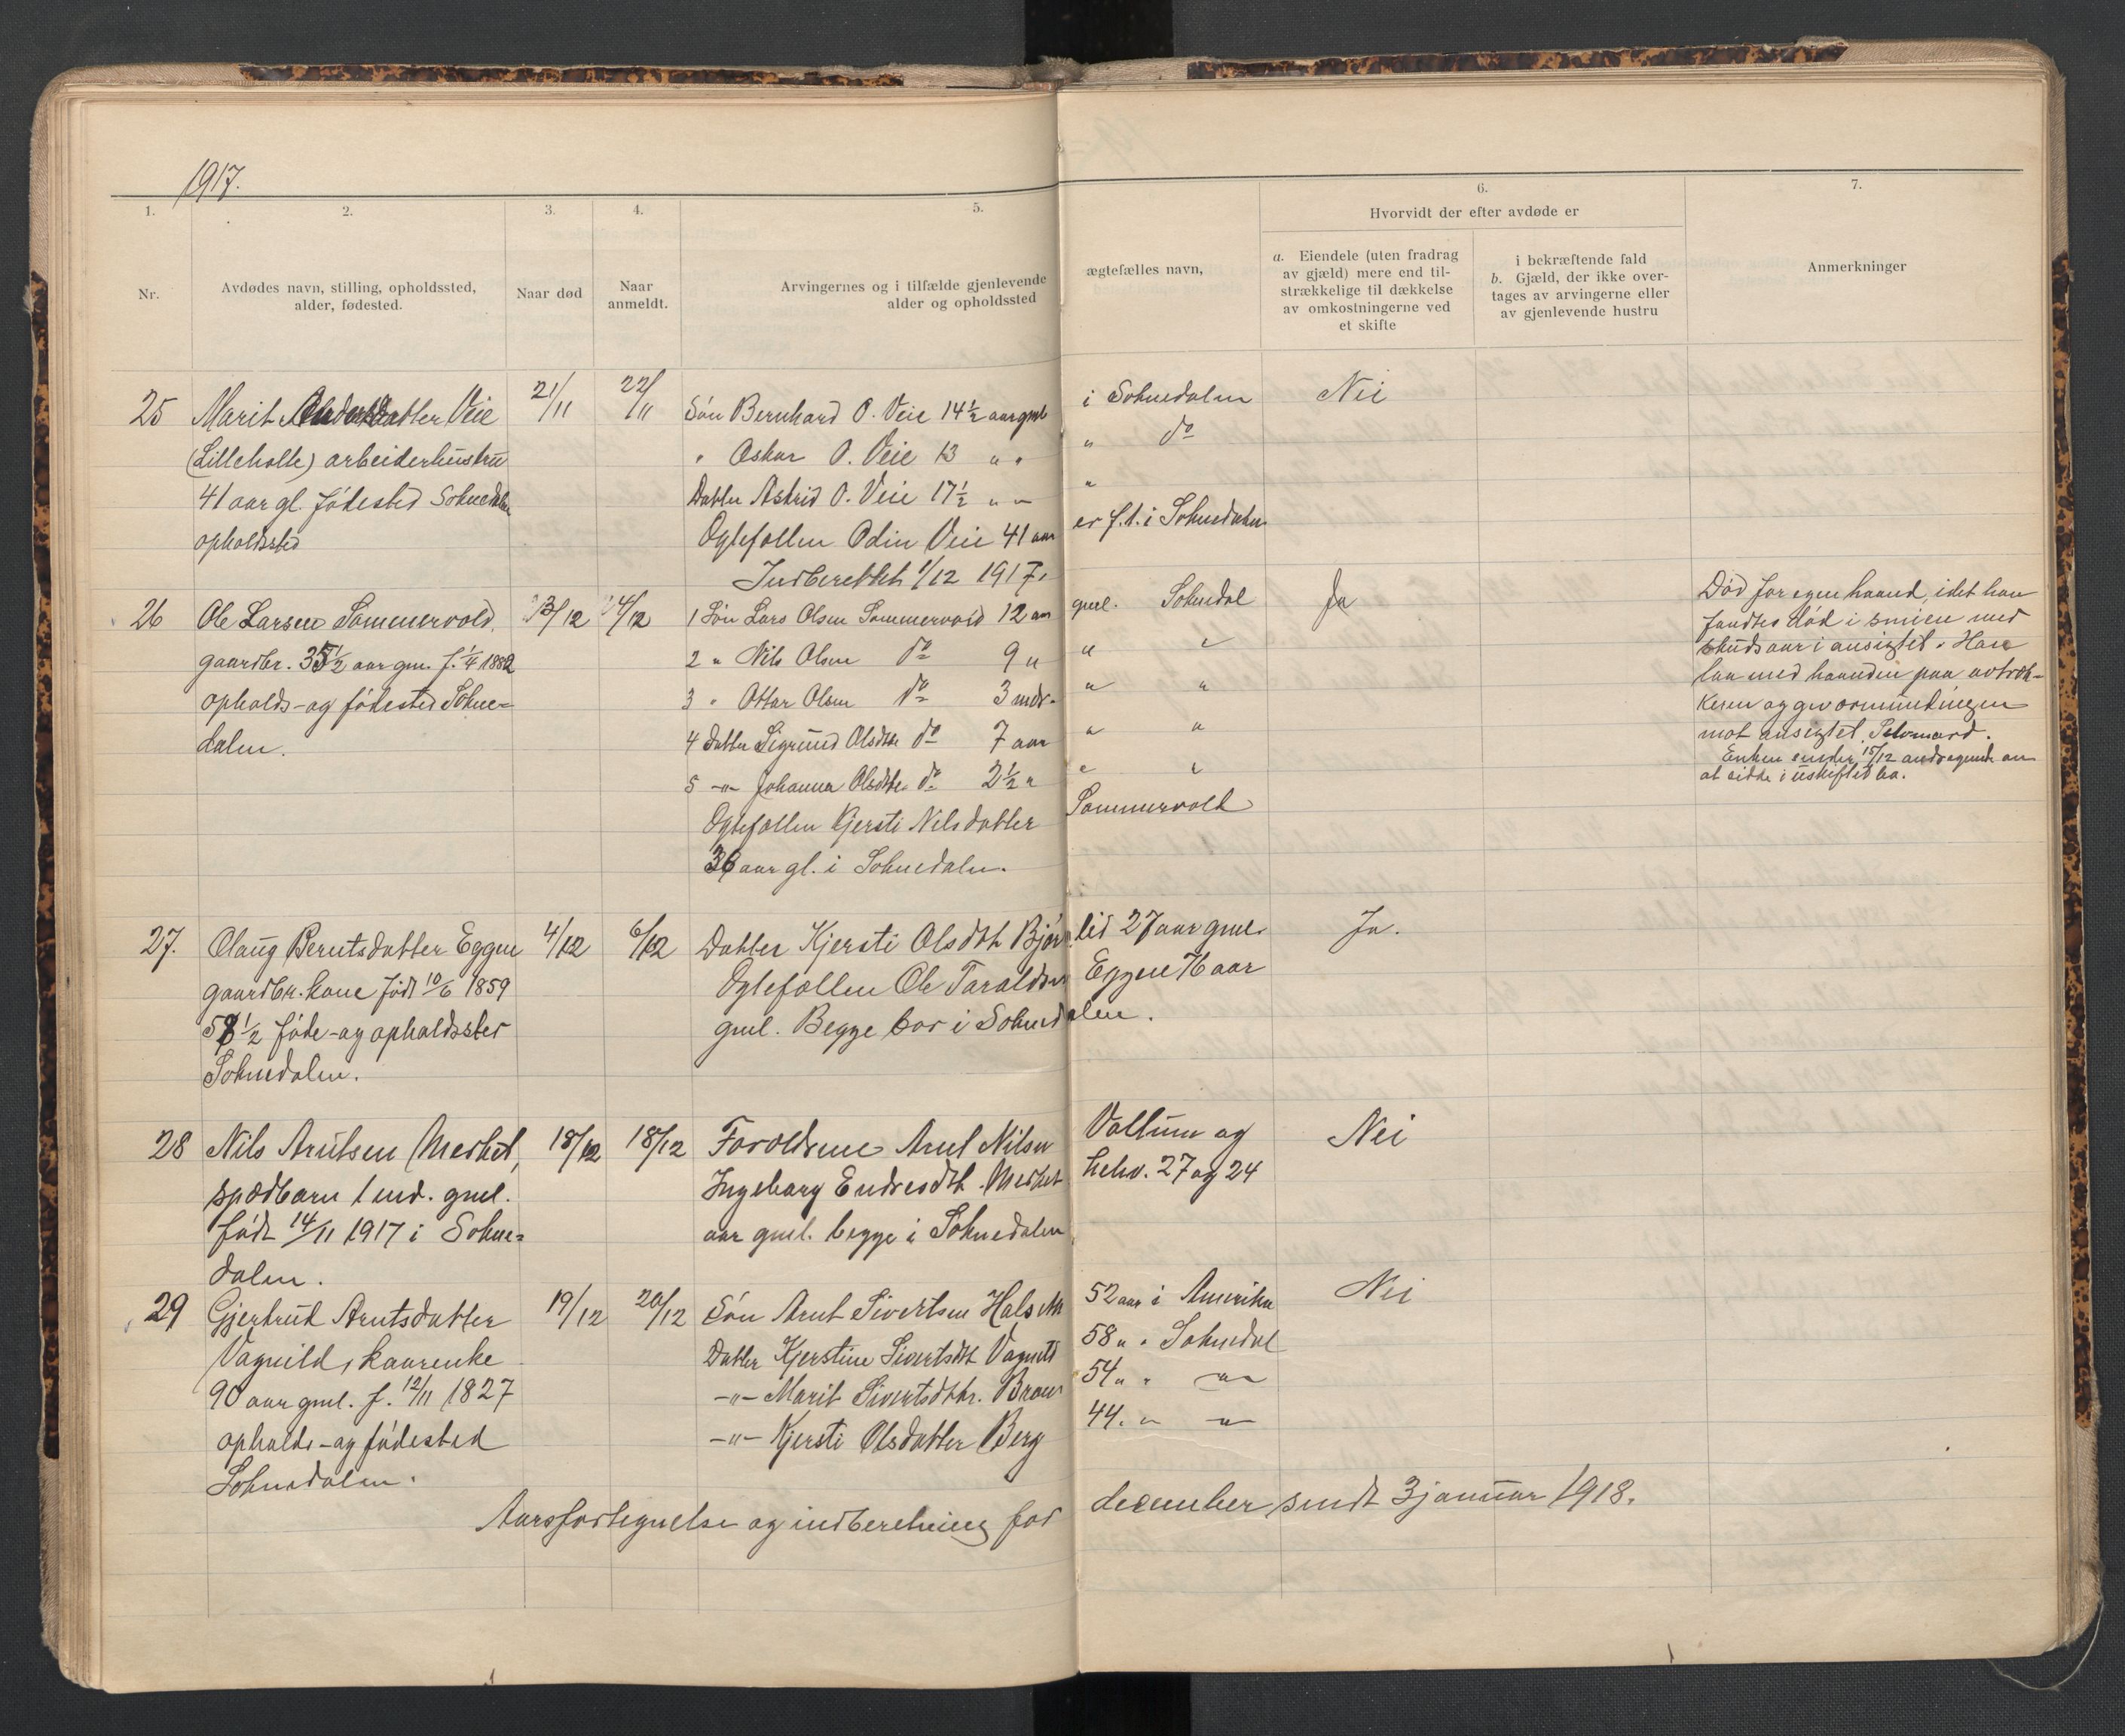 1917.
1.
2.
3.
4.
5.
6.
7.
Nr.
Avdødes navn, stilling, opholdssted,
alder, fødested.
Naar død
Naar
anmeldt.
Arvingernes og i tilfælde gjenlevende
alder og opholdssted
ægtefælles navn,
Hvorvidt der efter avdøde er
a. Eiendele (uten fradrag
av gjæld) mere end til-
strækkelige til dækkelse
av omkostningerne ved
et skifte
i bekræftende fald
b. Gjæld, der ikke over-
tages av arvingerne eller
av gjenlevende hustru
Anmerkninger
25 Marit Veie 21/11 22/11 Søn Bernhard O. Veie 14½ aar gml i Soknedalen Nei
(Lilleholte) arbeiderhustru " Oskar O. Veie 13 " " " do
41 aar gl. fødested Soknedalen Datter Astrid O. Veie 17½ " " "
opholdssted Ægtefællen Odin Veie 41 aar er f.t. i Soknedalen
Indberettet 1/12 1917.
26 Ole Larsen Sommervold 3/12 4/12 1 Søn Lars Olsen Sommervold 12 aar gml. Soknedal Ja
gaardbr. 35½ aar gm. f. ¼ 1882 2 " Nils Olsen do 9 " " "
opholds- og fødested Sokne= 3 " Ottar Olsen do 3 mdr. " "
dalen. 4 Datter Sigrund Olsdtr do 7 aar " "
5 -"- Johanna Olsdtr. do 2½ " " "
Ægtefællen Kjersti Nilsdatter Sommervold
36 aar gl. i Soknedalen.
Død for egen haand, idet han
fandtes død i smien med
skudsaar i ansigtet. Han
laa med haanden paa avtræk-
keren og geværmundingen
mot ansigtet. Selvmord.
Enken under 15/12 andragende om
at sidde i uskiftet bo.
27. Olaug Berntsdatter Eggen 4/12 6/12 Datter Kjersti Olsdtr Bjørlid 27 aar gml. Ja.
gaardbr. kone født 10/6 1859 Ægtefællen Ole Taraldsen Eggen 76 aar
58½ føde- og opholdssted gml. Begge bor i Soknedalen.
Soknedalen.
28 Nils Arntsen Merket, 18/12 18/12 Forældrene Arnt Nilsen Vollum og Nei
spædbarn 1 md. gml. Ingeborg Endresdtr. Merket hehv. 27 og 24
født 14/11 1917 i Sokne= aar gml. begge i Soknedalen
dalen.
29 Gjertrud Arntsdatter 19/12 20/12 Søn Arnt Sivertsen Halseth 52 aar i Amerika Nei
Vagnild, kaarenke Datter Kjerstine Sivertsdtr Vagnild 58 " " Soknedal
90 aar gml. f. 12/11 1827 -"- Marit Sivertsdtr. 54 " " -"-
opholds- og fødested -"- Kjersti Olsdatter Berg 44 " " -"-
Soknedalen.
Aarsfortegnelse og indberetning for december sendt 3 januar 1918.